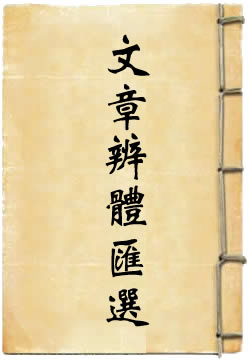 文章辨體匯選